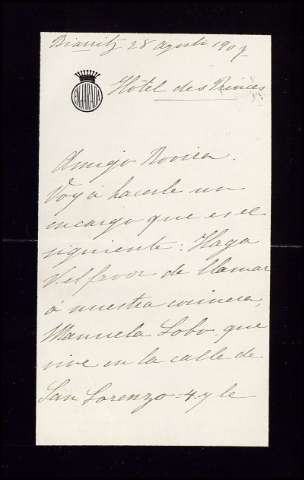 Biarritz 28 agosto 1907
Hotel des Princes
Amigo Rovira.
Voy á hacerle un
encargo que es el
siguiente: Haga
Vd el favor de llamar
á nuestra cocinera,
Manuela Lobo, que
vive en la calle de
San Lorenzo 4 y le